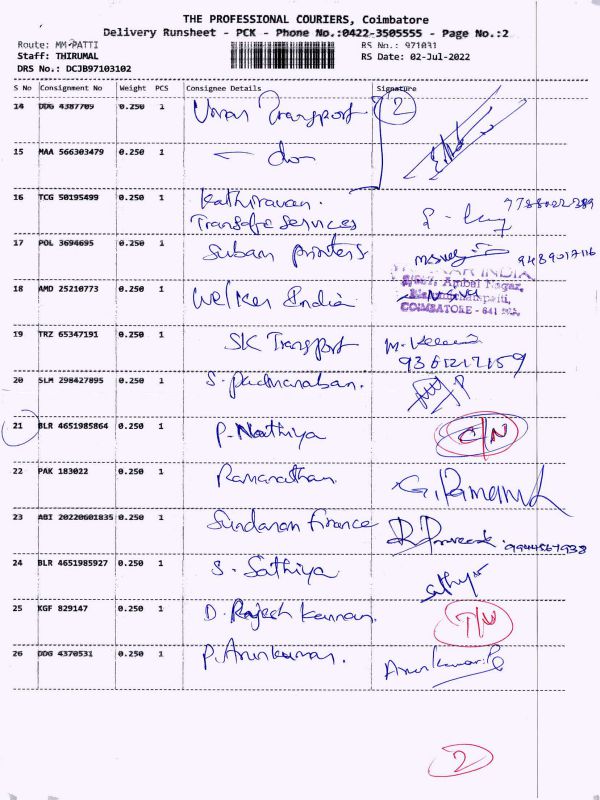 THE PROFESSIONAL COURIERS, Coimbatore
Delivery Runsheet - PCK - Phone No.:0422-3505555 - Page No.:2
Route: MM-PATTI
RS No.: 971031
Staff: THIRUMAL
RS Date: 02-Jul-2022
DRS No.: DCJB97103102
S No Consignment No Weight PCS Consignee Details Signature
14 DDG 4387709 0.250 1 Transport 2
15 MAA 566303479 0.250 1 - do -
16 TCG 50195499 0.250 1 Kathiravan.
Transafe Services
17 POL 3694695 0.250 1 Suban printers 9489017116
18 AMD 25210773 0.250 1 Welker India
INDIA
Ambal Nagar,
COIMBATORE - 641
19 TRZ 65347191 0.250 1 SK Transport M.
9361217159
20 SLM 298427895 0.250 1 S. Padmanaban.
21 BLR 4651985864 0.250 1 P. Nathiya C/N
22 PAK 183022 0.250 1 Ramanathan.
23 ABI 20220601835 0.250 1 Sundaram Finance 9944567938
24 BLR 4651985927 0.250 1 S. Sathiya
25 KGF 829147 0.250 1 D. Rajesh Kannan.
26 DDG 4370531 0.250 1 P. Arunkumar. Arunkumar.P
2